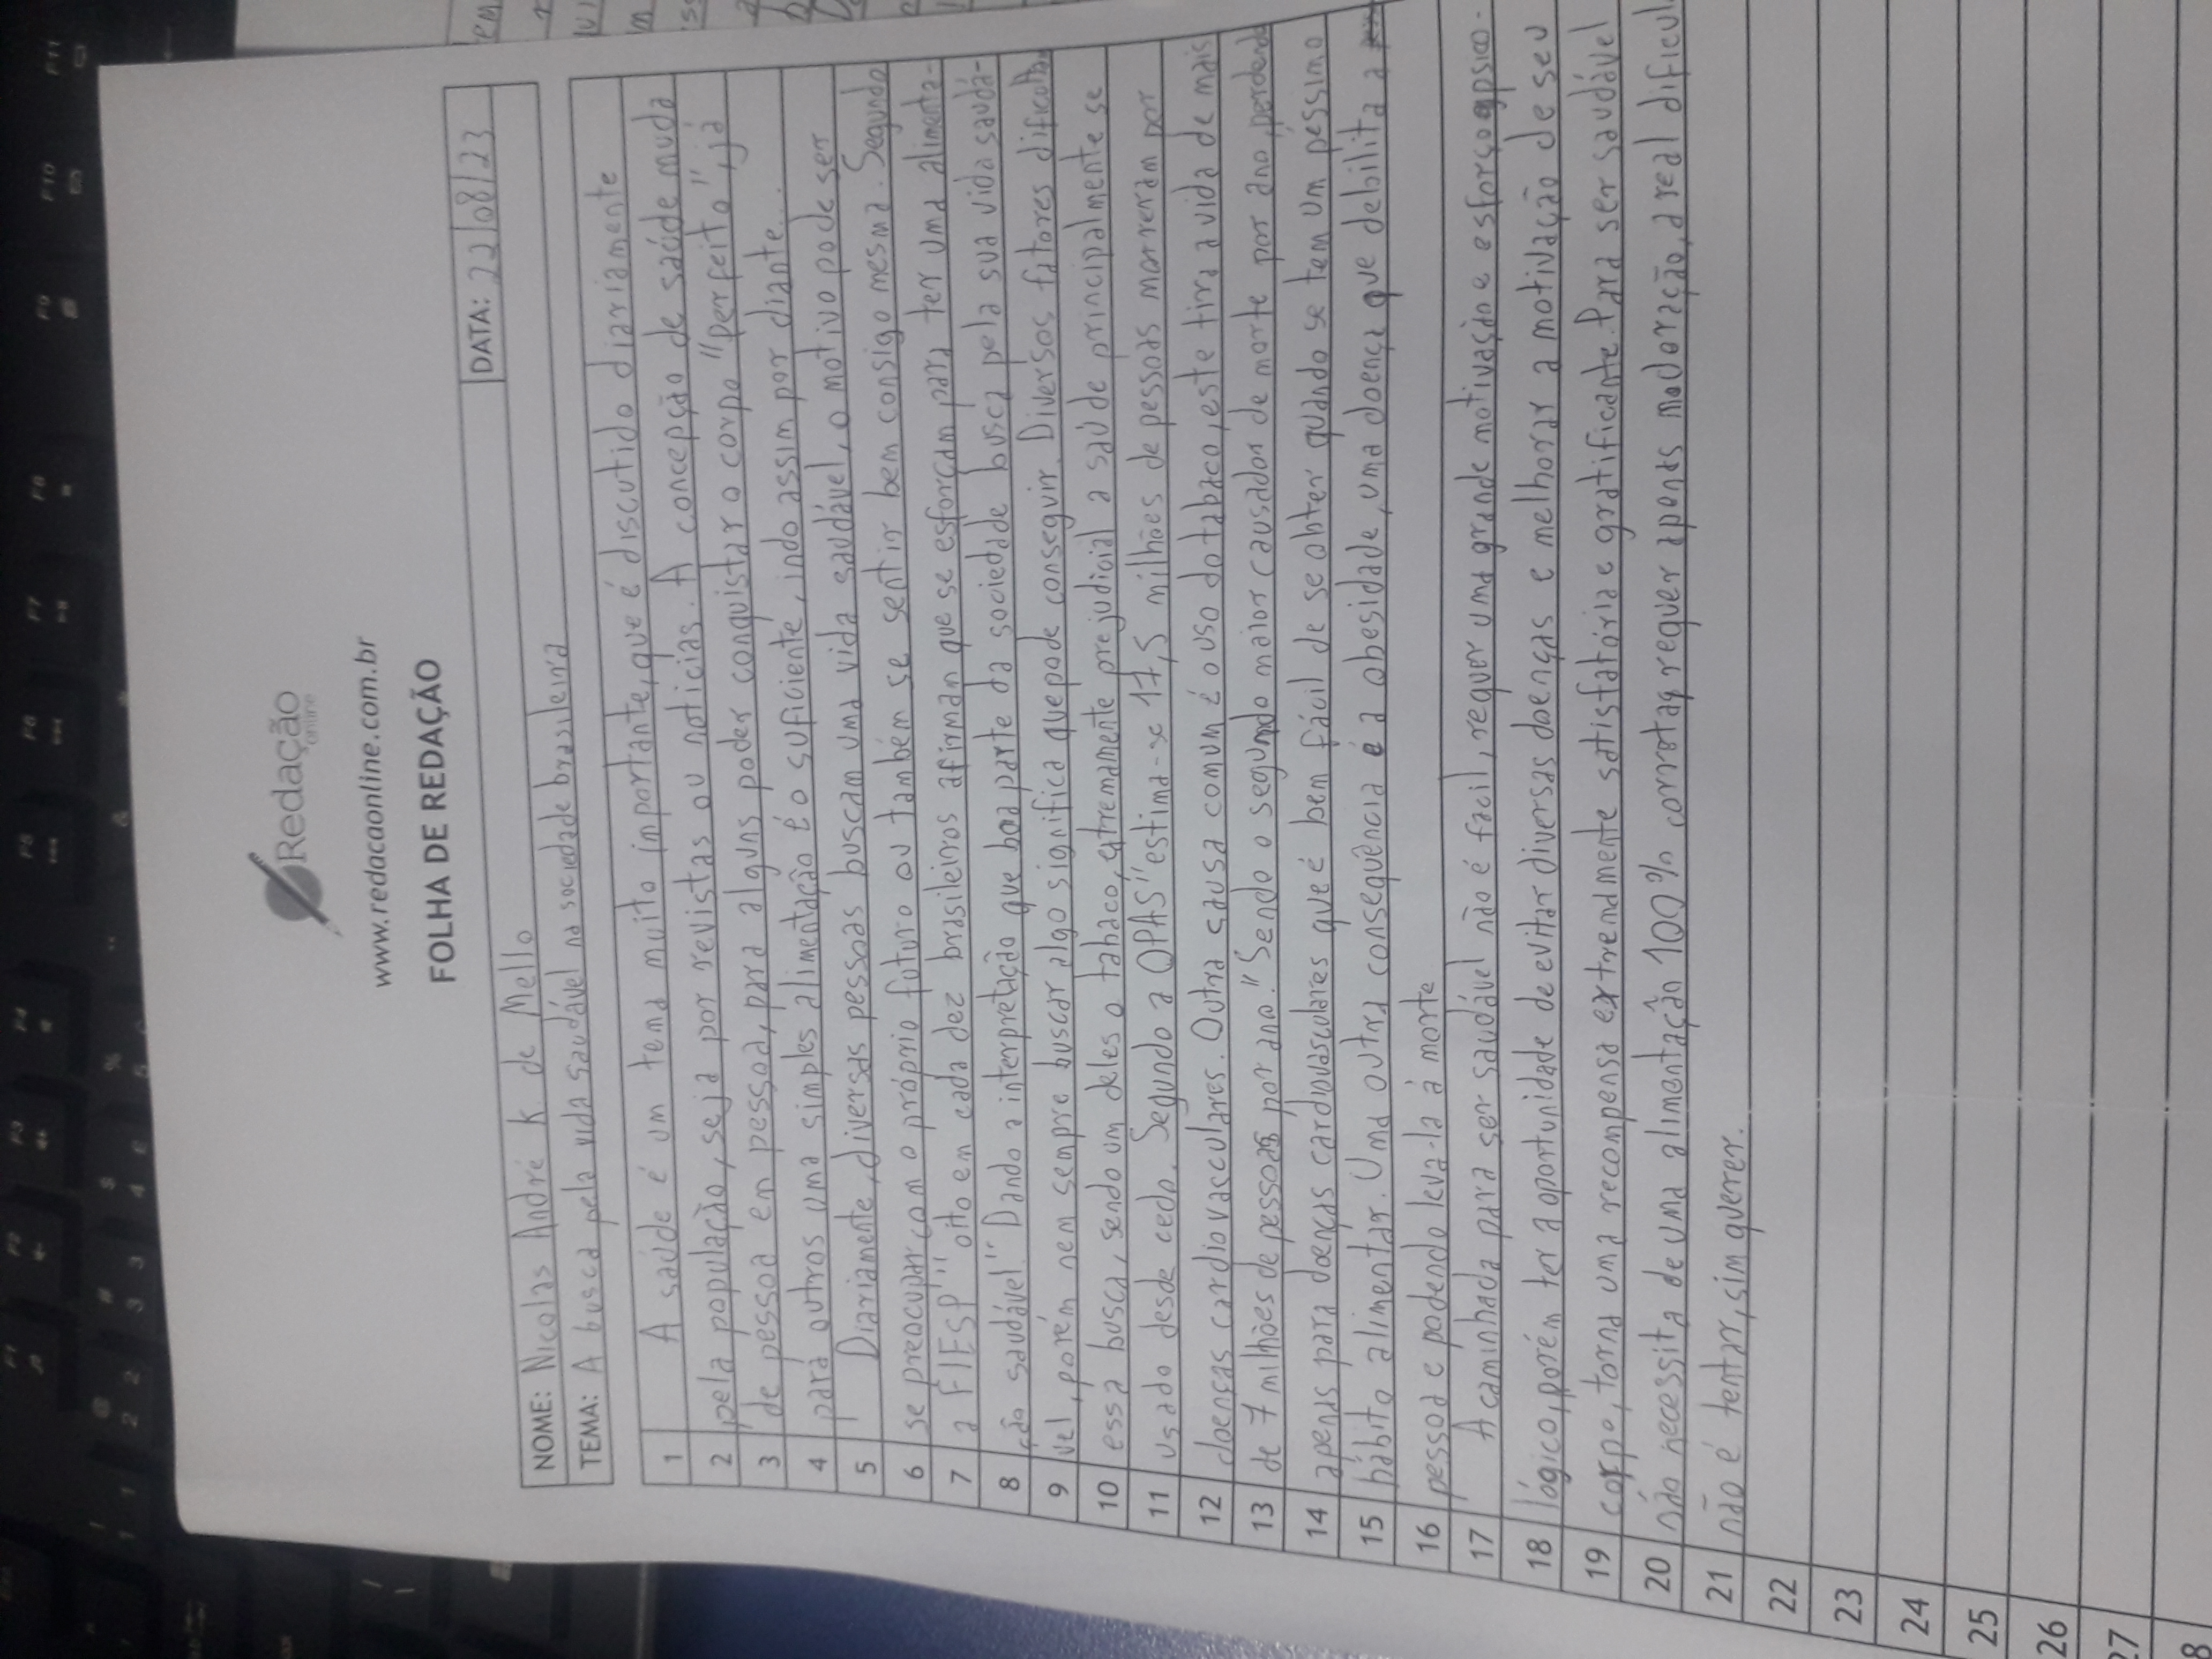 Redação
online
www.redacaonline.com.br
FOLHA DE REDAÇÃO
NOME: Nicolas André K. de Mello DATA: 22/08/23
TEMA: A busca pela vida saudável na sociedade brasileira
1 A saúde é um tema muito importante, que é discutido diariamente
2 pela população, seja por revistas ou noticias. A concepção de saúde muda
3 de pessoa em pessoa, para alguns poder conquistar o corpo "perfeito", já
4 para outros uma simples alimentação é o suficiente, indo assim por diante...
5 Diariamente, diversas pessoas buscam uma vida saudável, o motivo pode ser
6 se preocupar com o próprio futuro ou também se sentir bem consigo mesma. Segundo
7 a FIESP "oito em cada dez brasileiros afirman que se esforçam para ter uma alimenta-
8 ção saudável." Dando a interpretação que boa parte da sociedade busca pela sua vida saudá-
9 vel, porém nem sempre buscar algo significa que pode conseguir. Diversos fatores dificultam
10 essa busca, sendo um deles o tabaco, extremamente prejudicial a saúde principalmente se
11 usado desde cedo. Segundo a OPAS "estima-se 17,5 milhões de pessoas morreram por
12 doenças cardiovasculares. Outra causa comum é o uso do tabaco, este tira a vida de mais
13 de 7 milhões de pessoas por ano." Sendo o segundo maior causador de morte por ano, perdendo
14 apenas para doenças cardiovasculares que é bem fácil de se obter quando se tem um péssimo
15 hábito alimentar. Uma outra consequência é a obesidade, uma doença que debilita a
16 pessoa e podendo leva-la à morte
17 A caminhada para ser saudável não é facil, requer uma grande motivação e esforço psico-
18 lógico, porém ter a oportunidade de evitar diversas doenças e melhorar a motivação de seu
19 corpo, torna uma recompensa extremamente satisfatória e gratificante. Para ser saudável
20 não necessita de uma alimentação 100% correta, requer apenas moderação, a real dificul
21 não é tentar, sim querer.
22
23
24
25
26
27
8